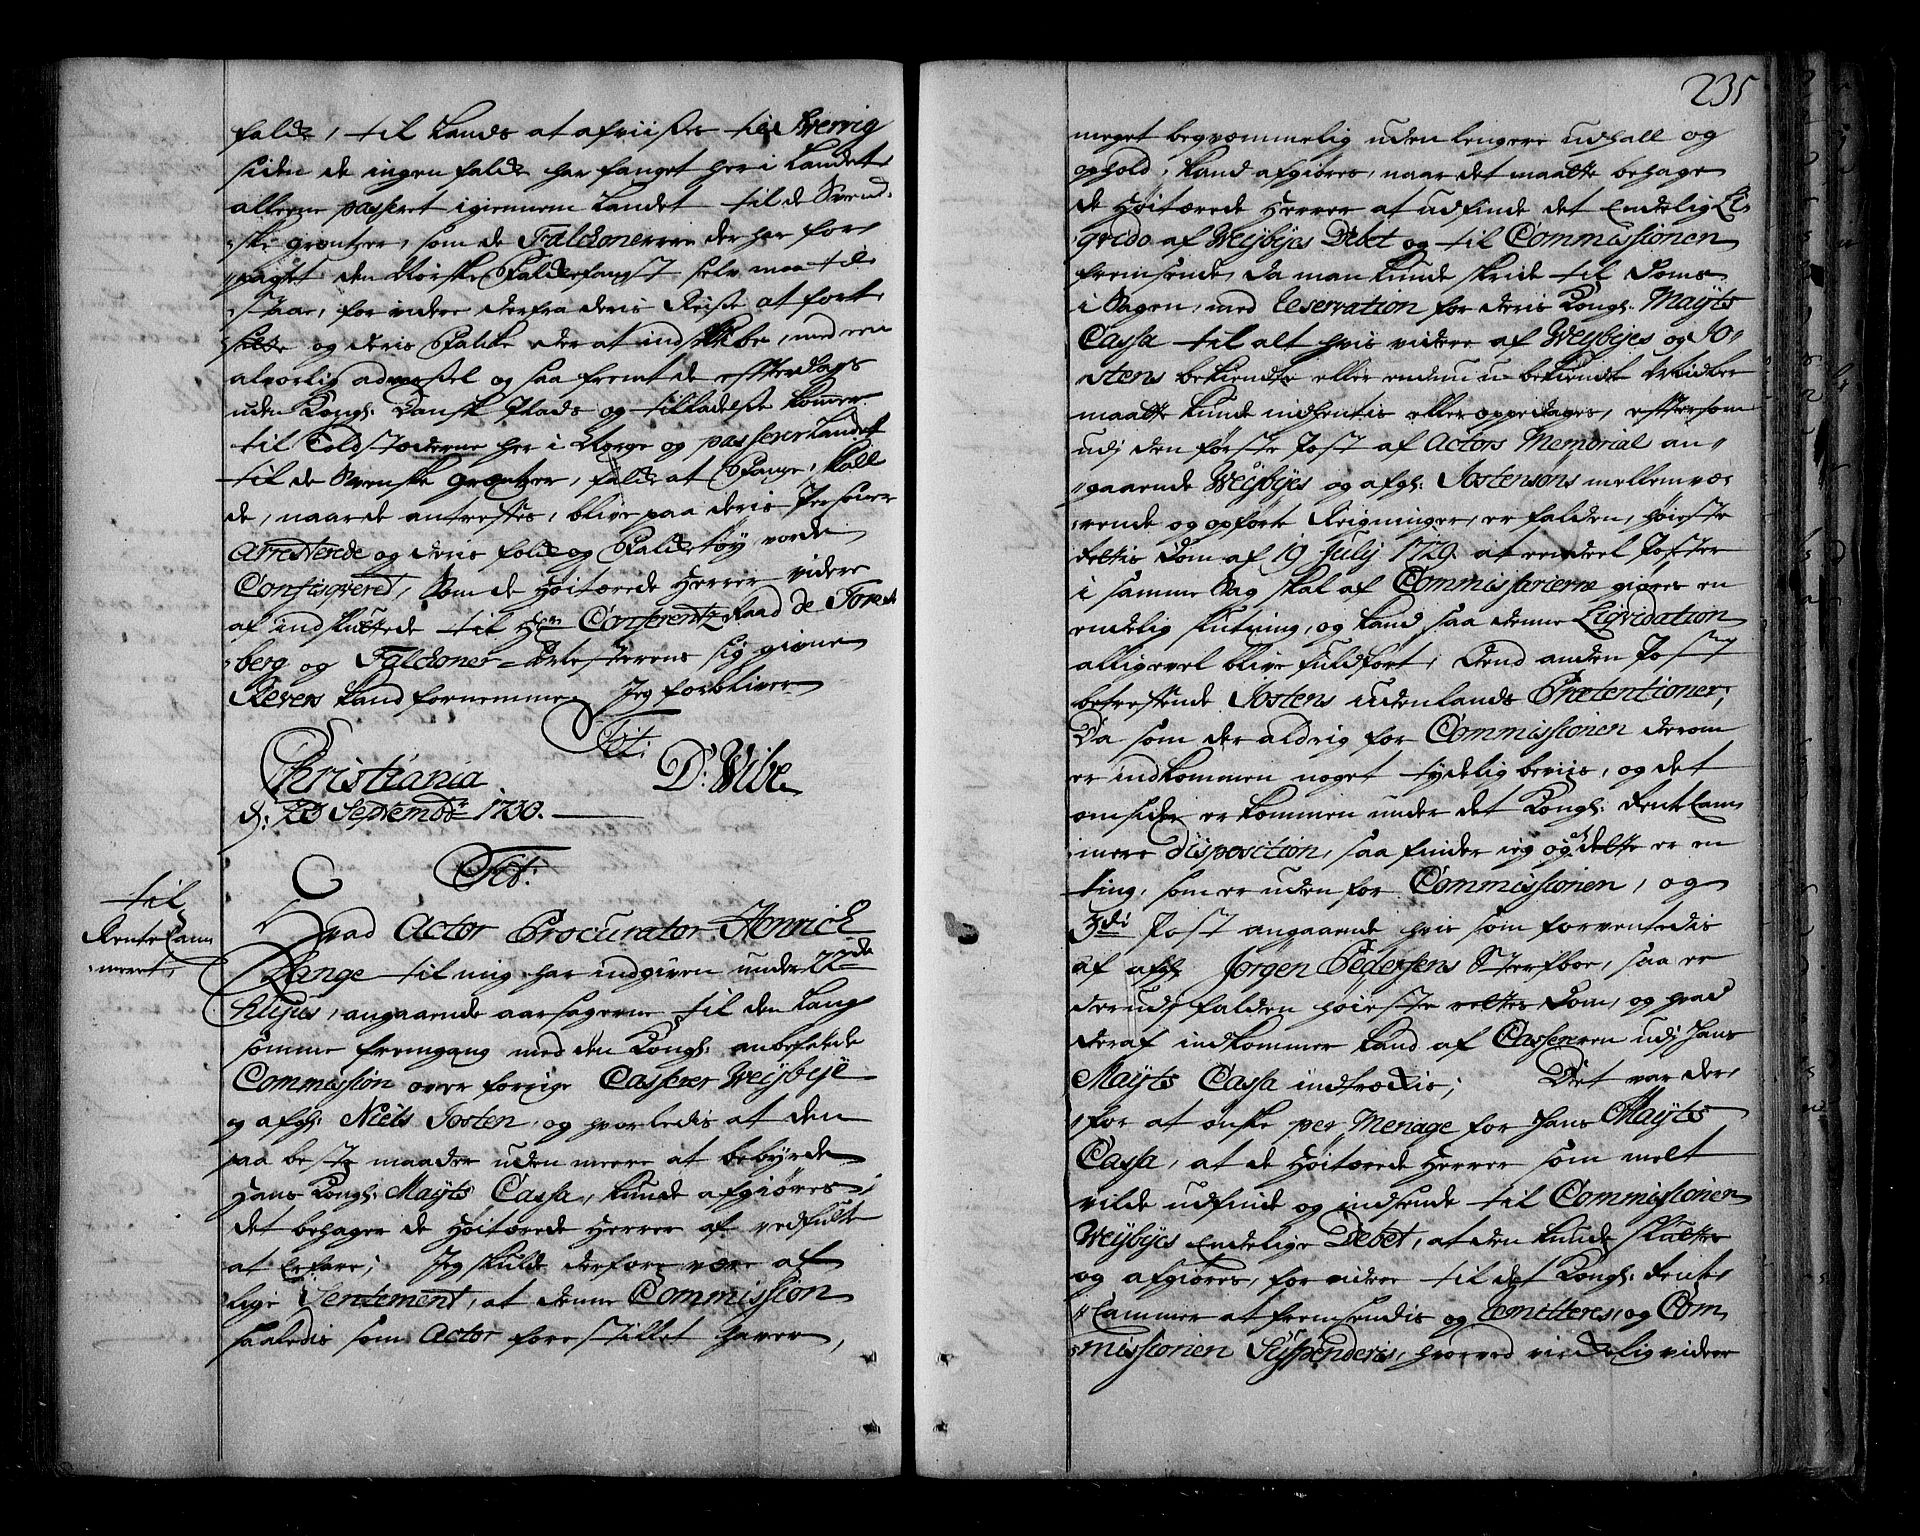 falck, til Lands at afviises til Sverrig
siden de ingen falck har fanget her i Landet
alleene passeret igiennem Landet til de Svend-
ske grentzer, som de Falckonerere der har for-
pagtet den Norske Falckefangst selv maa til
staae, for videre derfra deris Reise at fort
sætte og deris Falcke der at indskibe, med een
alvorlig advarsel og saa fremt de effterdags
uden Kongl: Dansk Pass og tilladelse kommer
til Toldstæderne her i Norge og passerer Landet
til de Svenske grentzer, falck at fange, skall
de, naar de antreffes, blive paa deris Persohner
Arresterede og deris folck og Falcketøy vorde
Confisqvered, som de Høitærede Herrer videre
af indsluttede til Hr Conferentz Raad de Tonsberg
berg og Falckoner-Mesterens sig givne
Revers kand fornemme, Jeg forbliver
Tit:
Christiania D: Vibe
d: 23 Septembr 1730.
Tit:
til
Rente Cam
meret,
Hvad Actor Procurator Henrich
Lange til mig har indgiven under 22de
Hujus, angaaende aarsagerne til den lang-
somme fremgang med den Kongl: anbefalede
Commission over forrige Casserer Weybye
og afg: Niels Josten, og hvorledis at den
paa beste maader uden meere at bebyrde
Hans Kongl: Mayts Cassa, kunde afgiøres,
det behager de Høitærede Herrer af vedfulte
at Erfare; Jeg skulde derfore være af
lige Sentement, at denne Commission
saaledis som Actor forestillet haver,
235
meget beqvæmmelig uden lengere udhall og
ophold, kand afgiøres, naar det maatte behage
de Høitærede Herrer at udfinde det Endelig Li-
qvido af Weybyes Debet og til Commissionen
fremsende, da man kunde skride til Doms
i Sagen, med Reservation for Deris Kongl: Mayts
Cassa til alt hvis videre af Weybyes og Jo-
stens bekiendte eller endnu u-bekiendte Midler
maatte kunde indhentis eller oppedages, effttersom
udj den første Post af Actors Memorial an-
gaaende Weybyes og afg: Jostensøns mellemvæ-
rende og opførte Reigninger, er falden, høieste
Rettis Dom af 19 July 1729. at een deel Poster
i samme Sag skal af Commissarierne giøres en
endelig slutning, og kand saa denne Liqvidation
alligevel blive fuldført; Dend anden Post
betreffende Jostens udenlands Prætentioner;
Da som der aldrig for Commissionen derom
er indkommen noget tydelig beviis, og det
omsider er kommen under det Kongl: Rente Cam-
mers Disposition, saa finder ieg og at dette er en
ting, som er uden for Commissionen, og
3die Post angaaende hvis som forventedis
af afg: Jørgen Pedersens Sterfboe, saa er
derudj falden høieste rettes Dom, og hvad
deraf indkommer kand af Casseren udj Hans
Mayts Cassa indtrædis; Det var der-
for at ønske per Menage for Hans Mayts
Cassa, at de Høitærede Herrer som melt
vilde udfinde og indsende til Commissionen
Weybyes Endelige Debet, at den kunde sluttes
og afgiøres, for videre til det Kongl: Rente-
Cammer at fremsendis og Remitteres, og Com-
missionen Suspenderis, hvorved viidelig videre